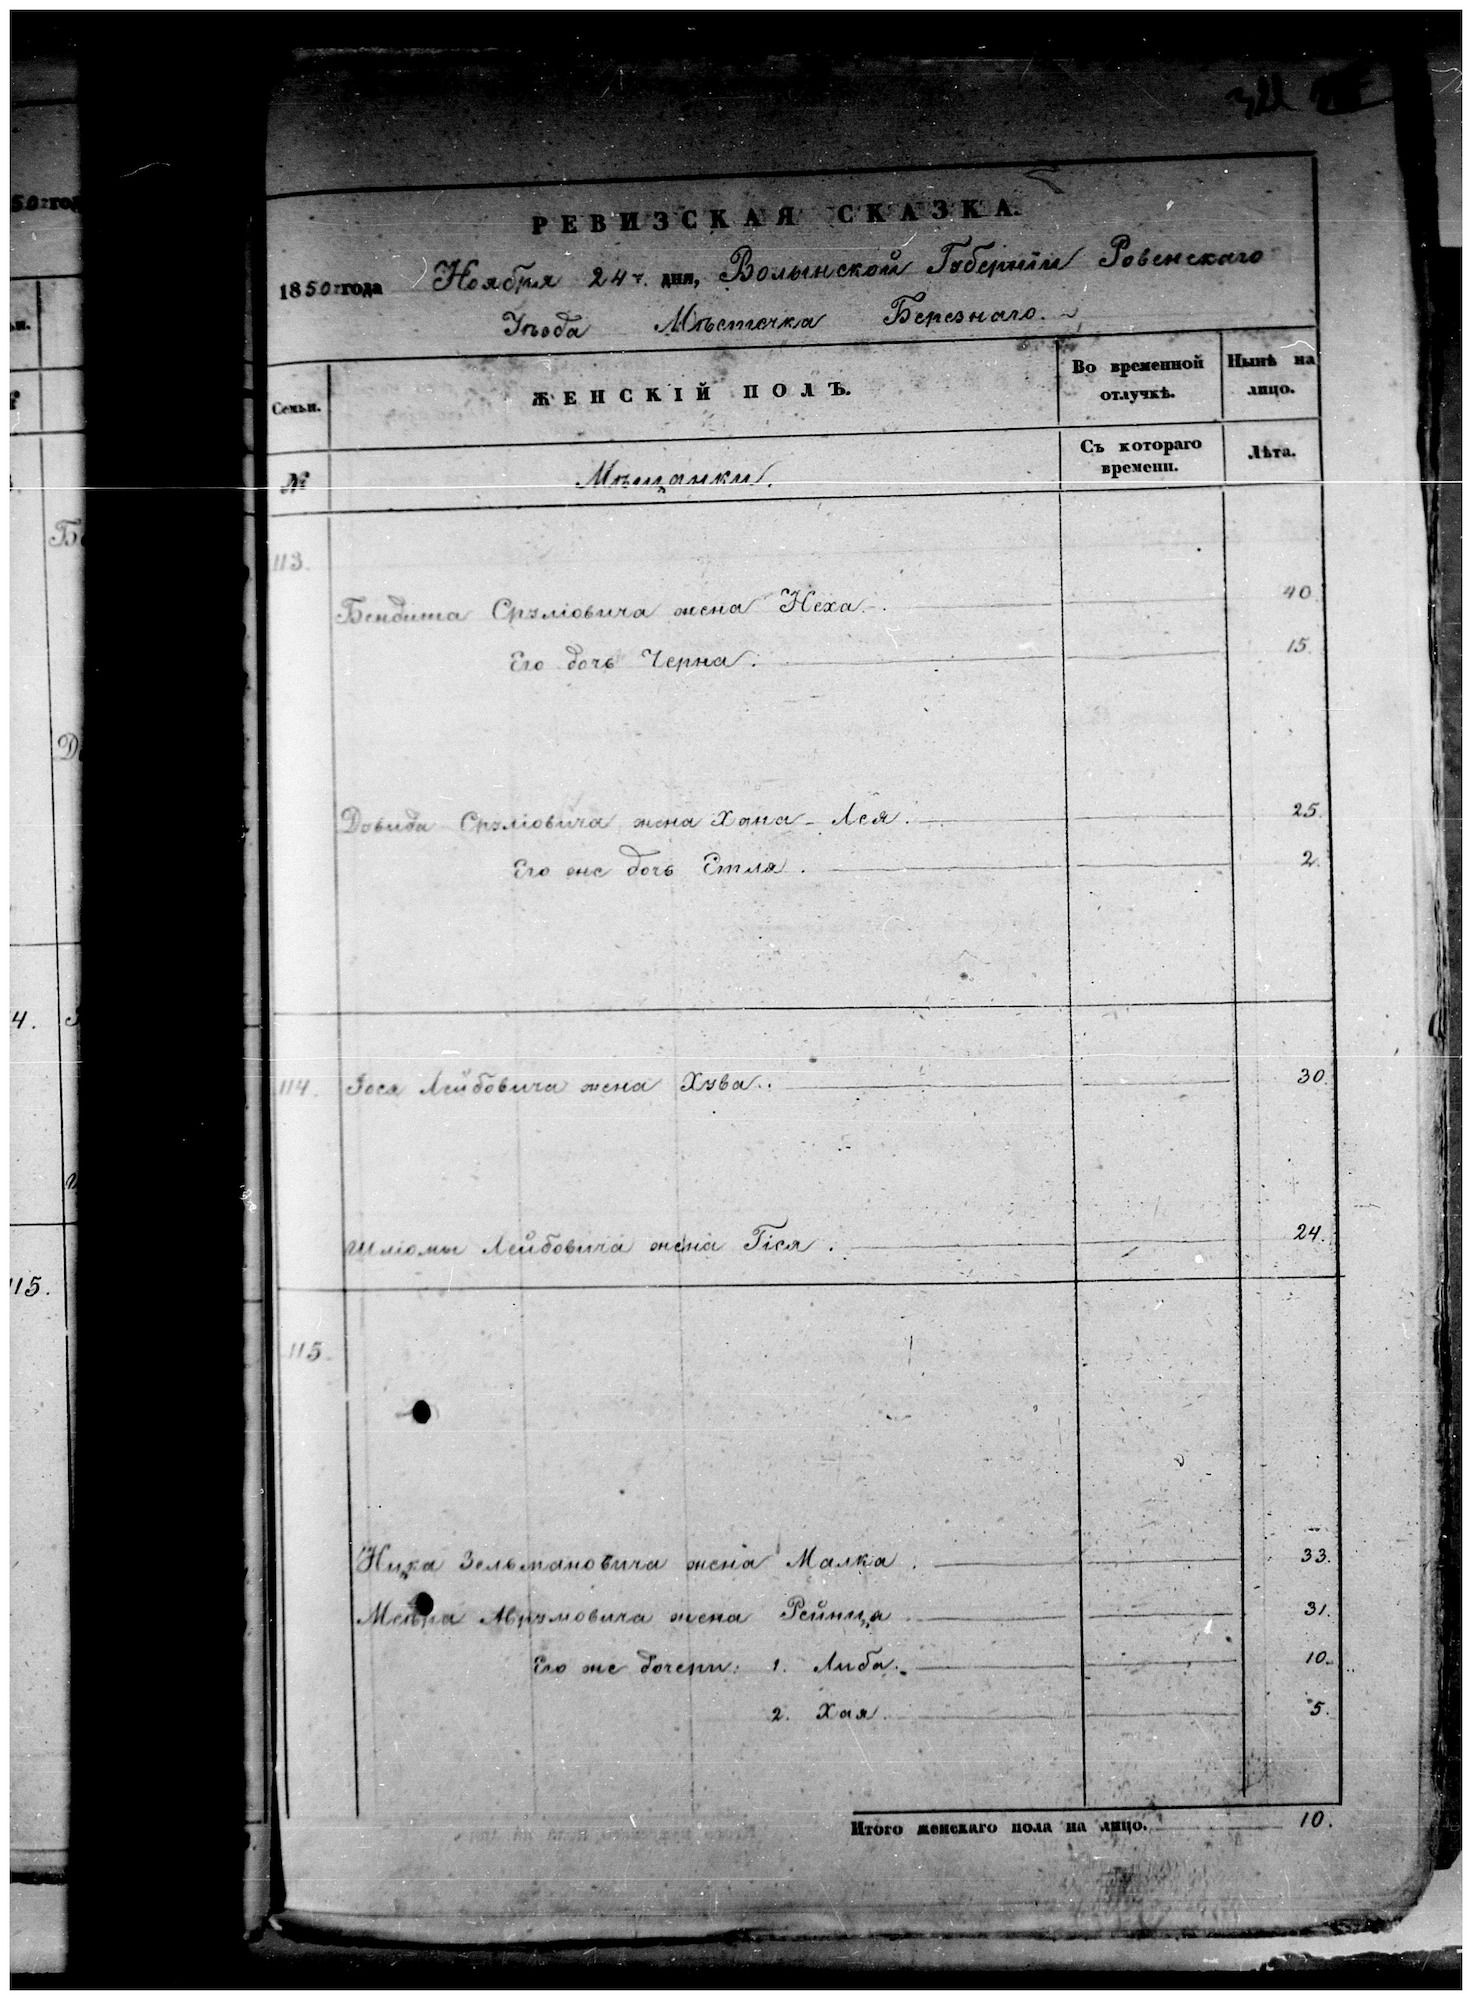 РЕВИЗСКАЯ СКАЗКА.
1850 года Ноября 24 дня, Волынской Губерніи Ровенскаго
Уѣзда Мѣстечка Березнаго.
Семьи.
ЖЕНСКІЙ ПОЛЪ.
Во временной отлучкѣ.
Нынѣ на лицо.
№
Мѣщанки.
Съ котораго времени.
Лѣта.
113.
Бендита Срулiовича жена Неха. 40
Его дочь Черна. 15.
Довида Срулiовича жена Хана-Лея. 25.
Его же дочь Етля. 2.
114. Іося Лейбовича жена Хува. 30.
Шліомы Лейбовича жена Гіся. 24.
115.
Ицка Зельмановича жена Малка. 33.
Меера Аврумовича жена Рейница 31.
Его же дочери: 1. Либа. 10.
2. Хая. 5.
Итого женскаго пола на лицо. 10.
50 год
4.
115.